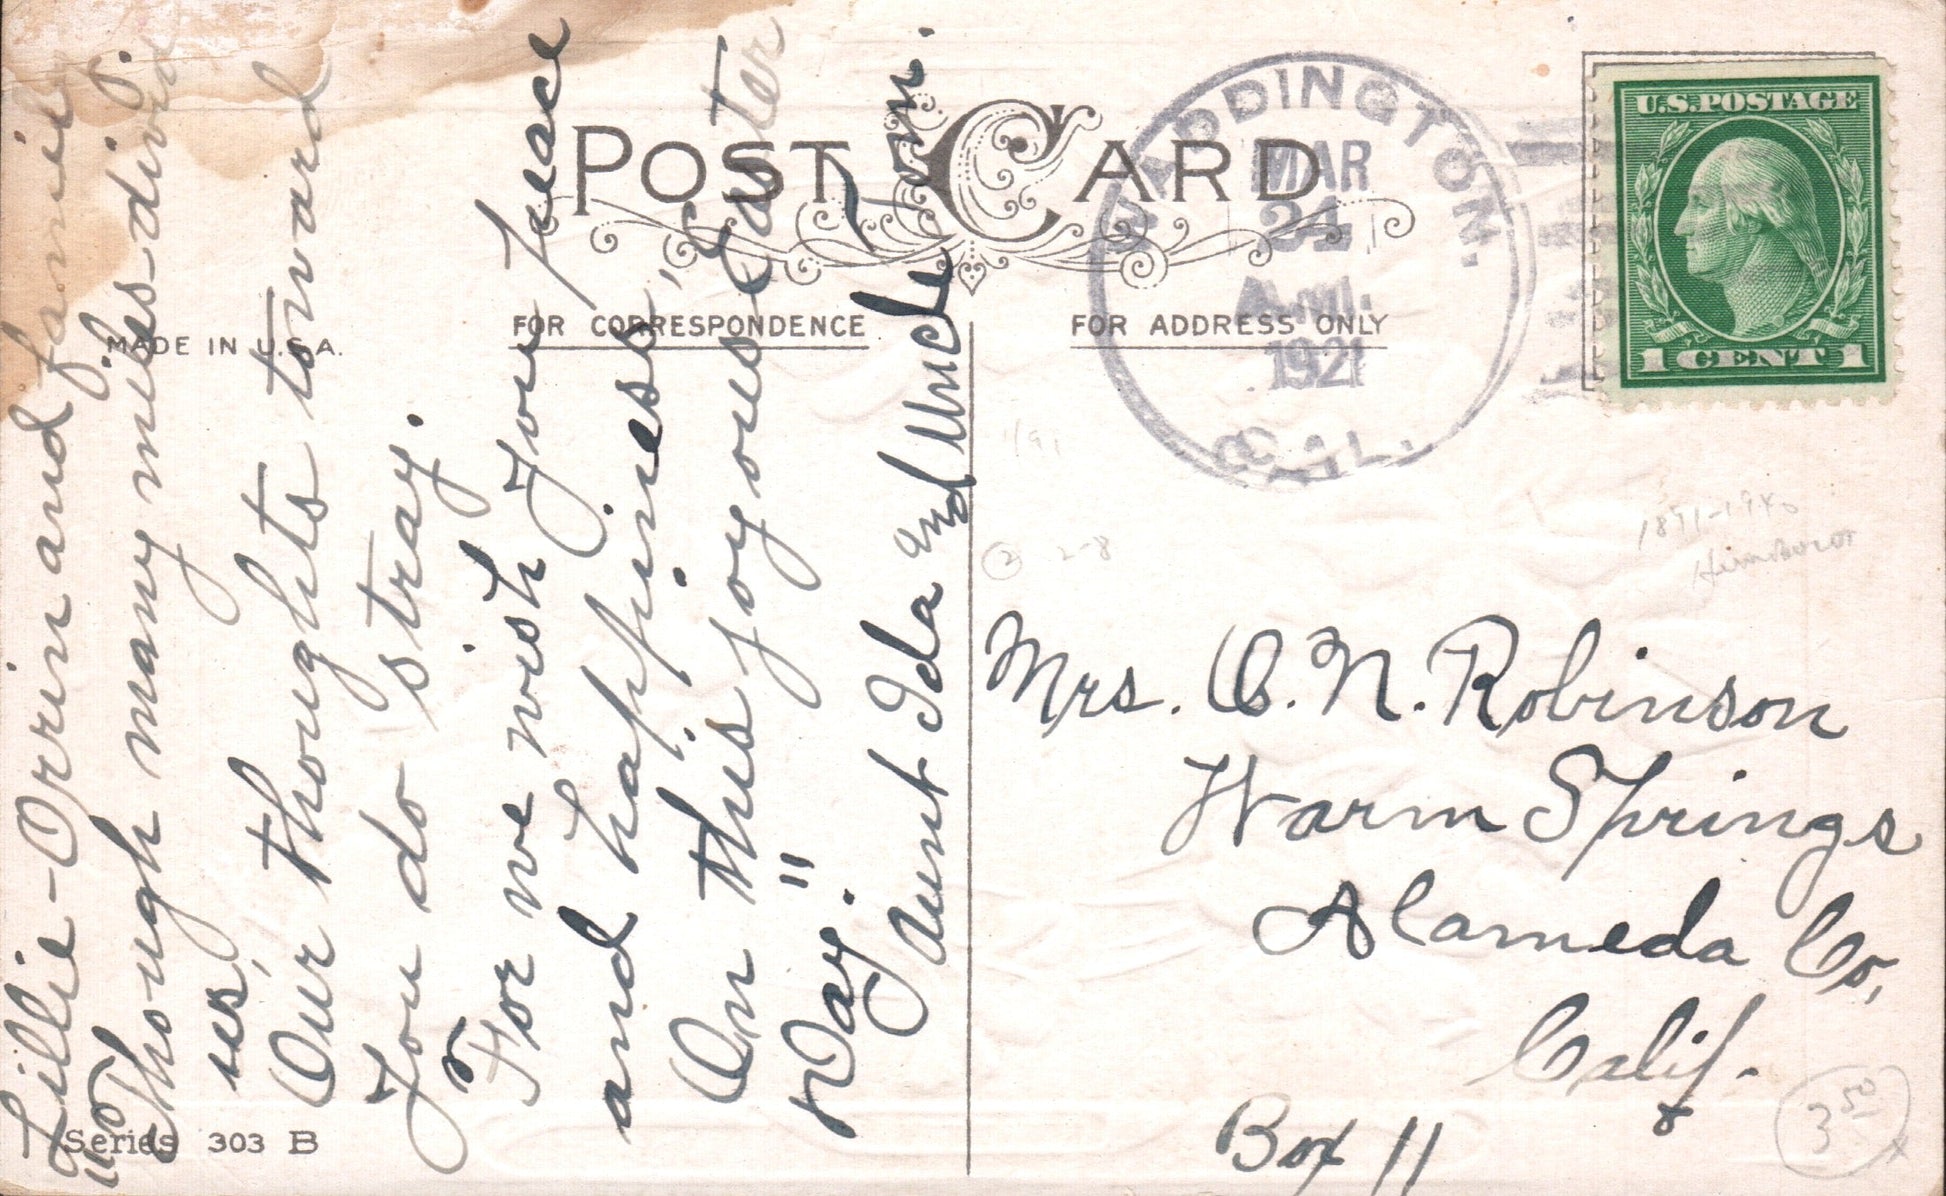 POST CARD
MADE IN U.S.A.
FOR CORRESPONDENCE
FOR ADDRESS ONLY
WADDINGTON.
MAR
24
A.M.
1921
CAL.
U.S.POSTAGE
1 CENT 1
Lillie - Orrin and family.
"Though many miles divide
us,
Our thoughts toward
You do stray.
For we wish you peace
and happiness,
On this joyous Easter
Day."
Aunt Ida and Uncle Tom.
1891-1940
Humboldt
② 2-8
Mrs. O. N. Robinson
Warm Springs
Alameda Co,
Calif.
Box 11
3 50
Series 303 B